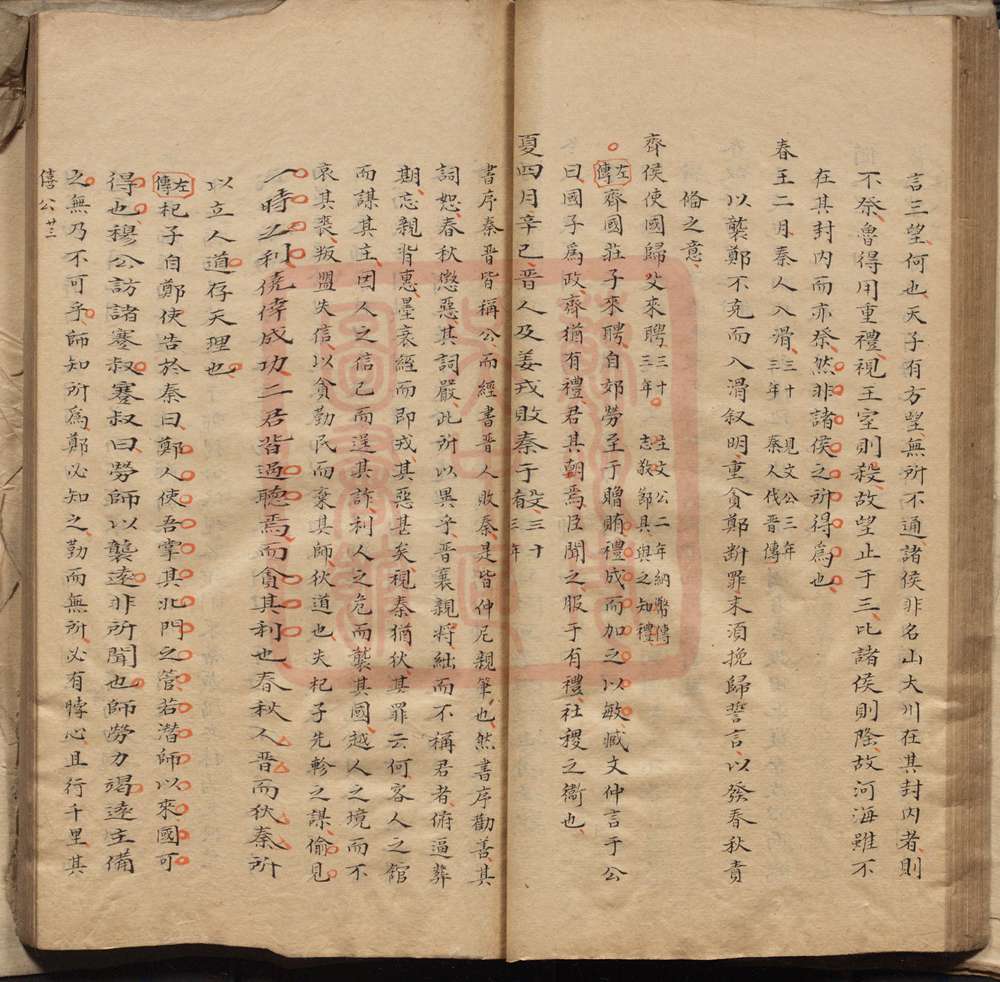 言三望何也天子有方望無所不通諸侯非名山大川在其封内者則
不祭魯得用重禮視王室則殺故望止于三比諸侯則隆故河海雖不
在其封内而亦祭然非諸侯之所得為也
春王二月秦人入滑三十三年見文公三年秦人伐晋傳
以襲鄭不克而入滑叙明重貪鄭断罪末湏挽歸誓言以發春秋責
偹之意
齊侯使國歸父来聘三十三年
左傳齊國莊子來聘自郊勞至于贈賄禮成而加之以敏臧文仲言于公
曰國子為政齊猶有禮君其朝焉臣聞之服于有禮社稷之衞也
夏四月辛巳晋人及姜戎敗秦于殽三十有三年
書序秦晋皆稱公而經書晋人敗秦是皆仲尼親筆也然書序勸善其
詞恕春秋懲惡其詞嚴此所以異乎晋襄親將絀而不稱君者俯逼葬
期忘親背惠墨衰絰而即戎其惡甚矣視秦猶狄其罪云何客人之館
而謀其主因人之信己而逞其詐利人之危而襲其國越人之境而不
哀其喪叛盟失信以貪勤民而棄其師狄道也夫杞子先軫之謀偷見
一時之利僥倖成功二君皆過聽焉而貪其利也春秋人晋而狄秦所
以立人道存天理也
左傳杞子自鄭使告於秦曰鄭人使吾掌其北門之管若潛師以來國可
得也穆公訪諸蹇叔蹇叔曰勞師以襲逺非所聞也師勞力竭逺主備
之無乃不可乎師知所為鄭必知之勤而無所必有悖心且行千里其
僖公 廿三